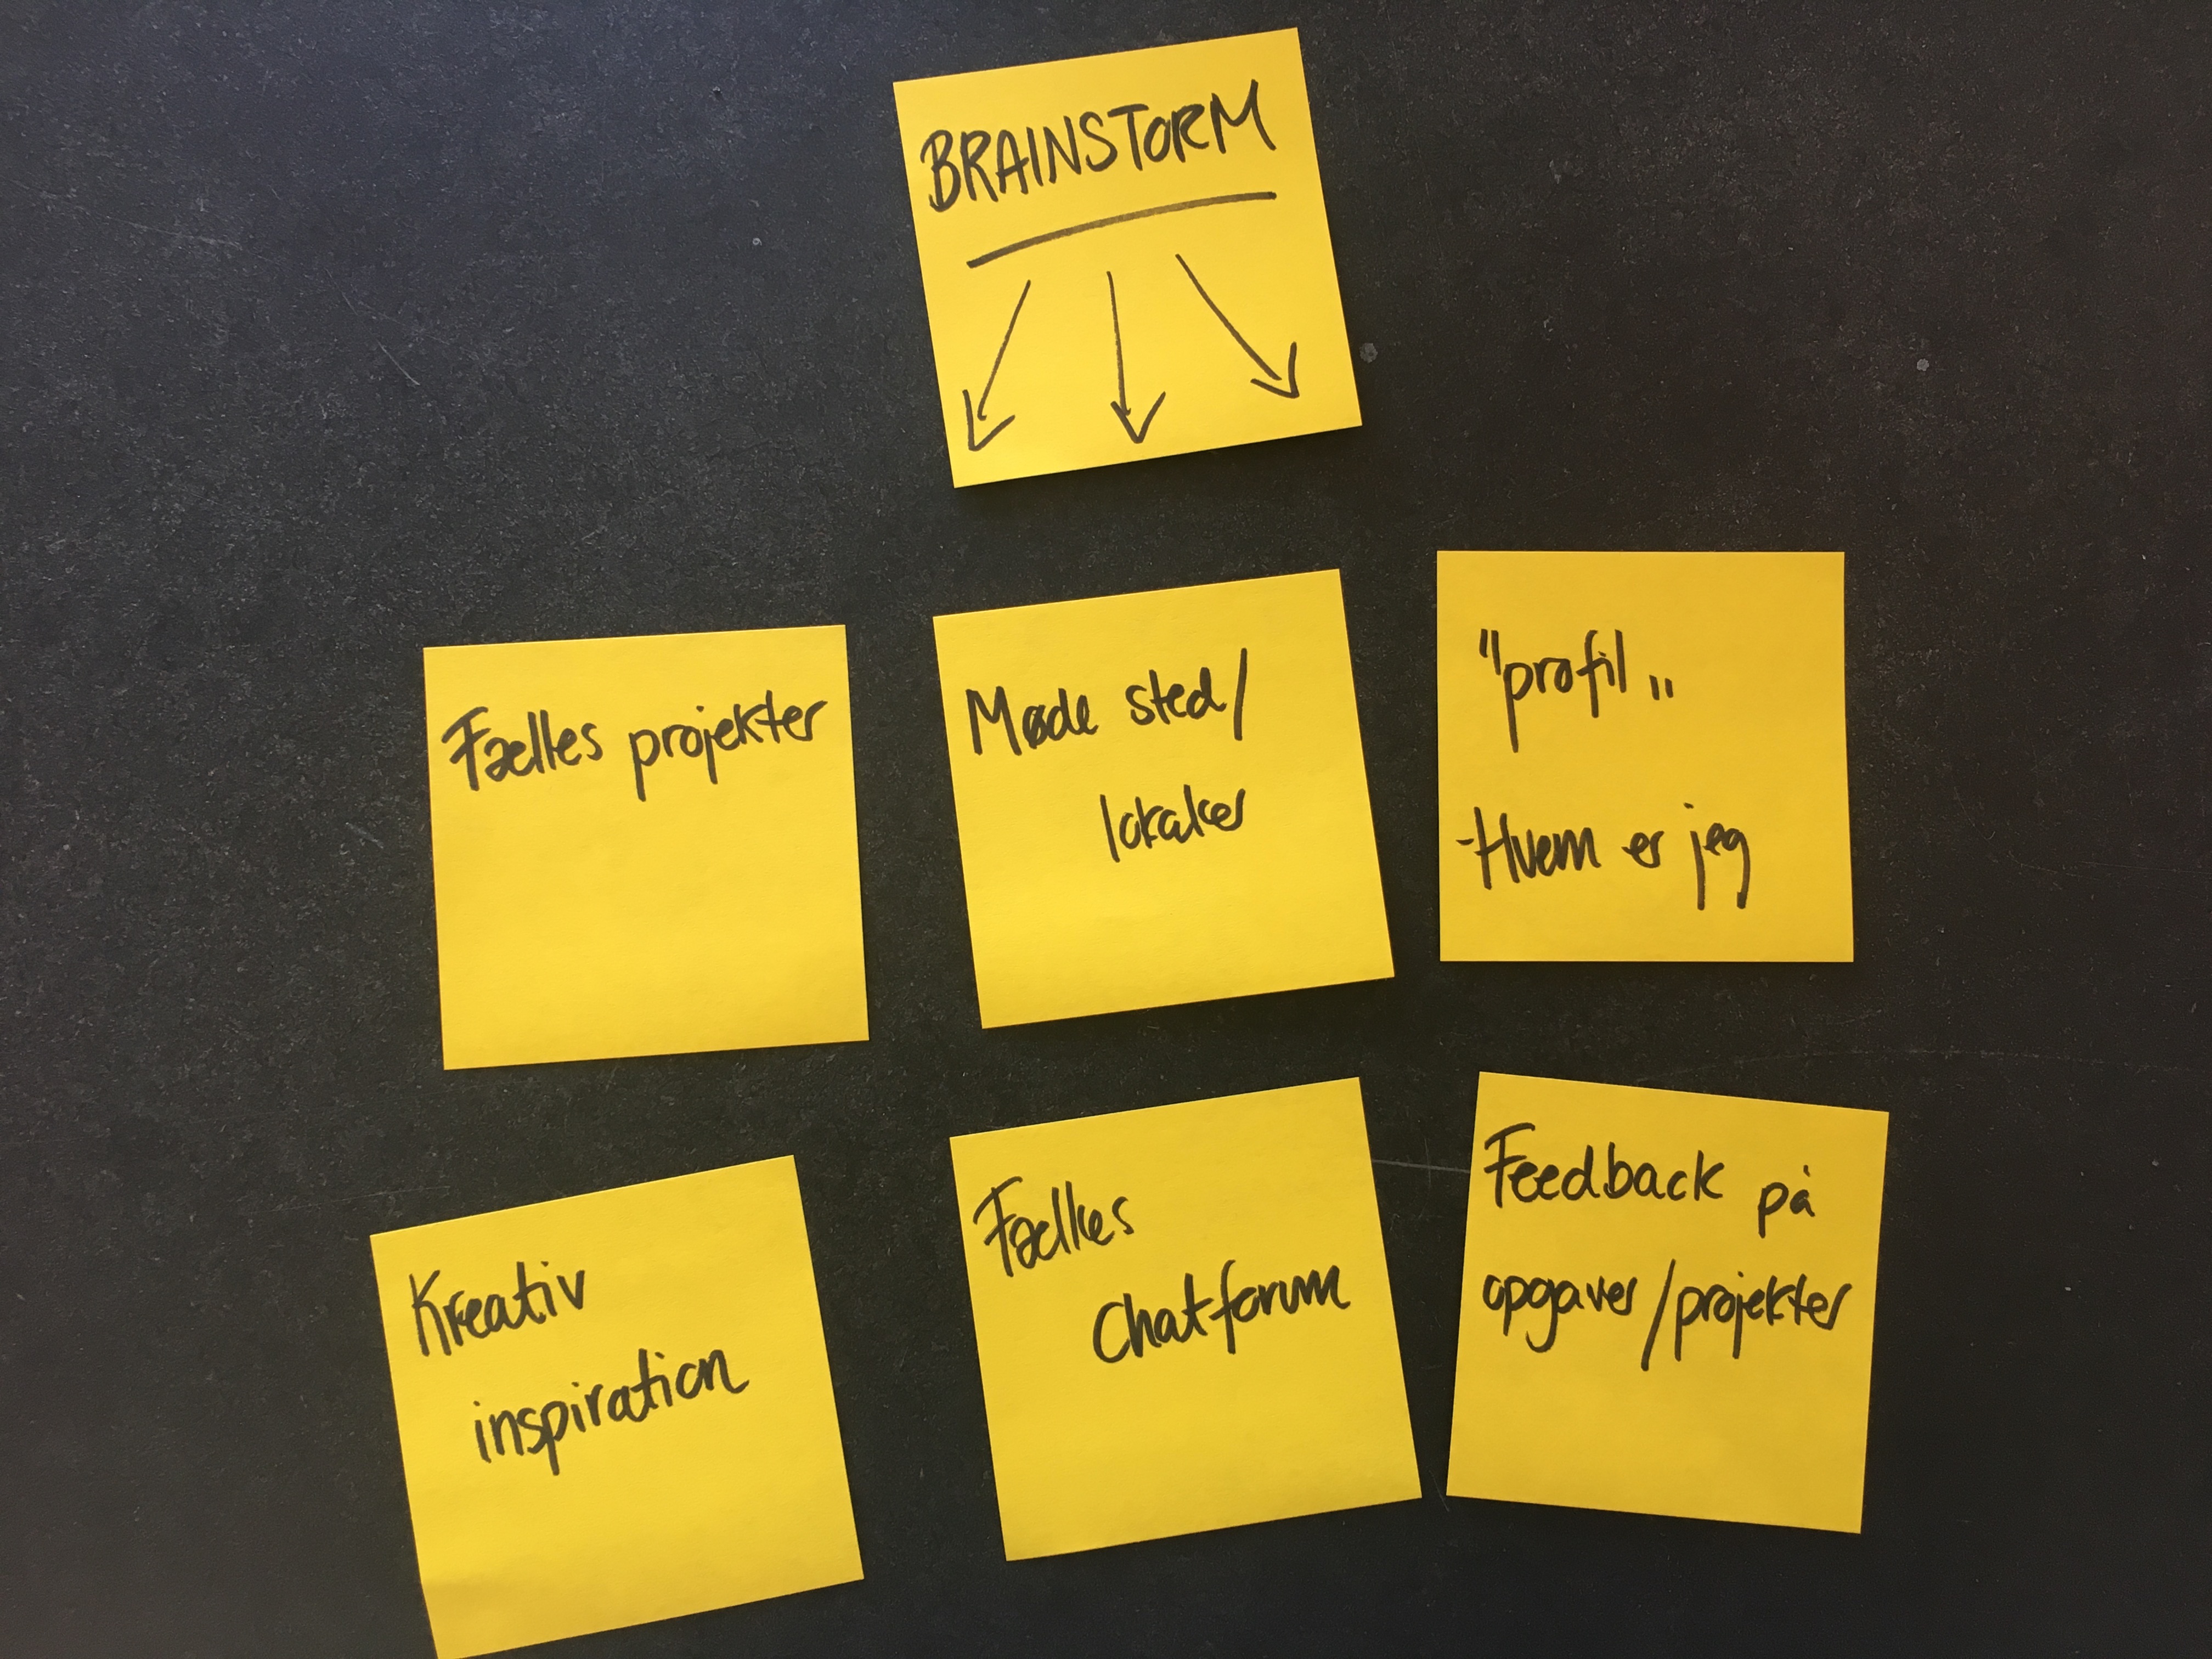 BRAINSTORM
Fælles projekter
Møde sted/
lokaler
"profil„
-Hvem er jeg
Kreativ
inspiration
Fælles
Chatforum
Feedback på
opgaver/projekter